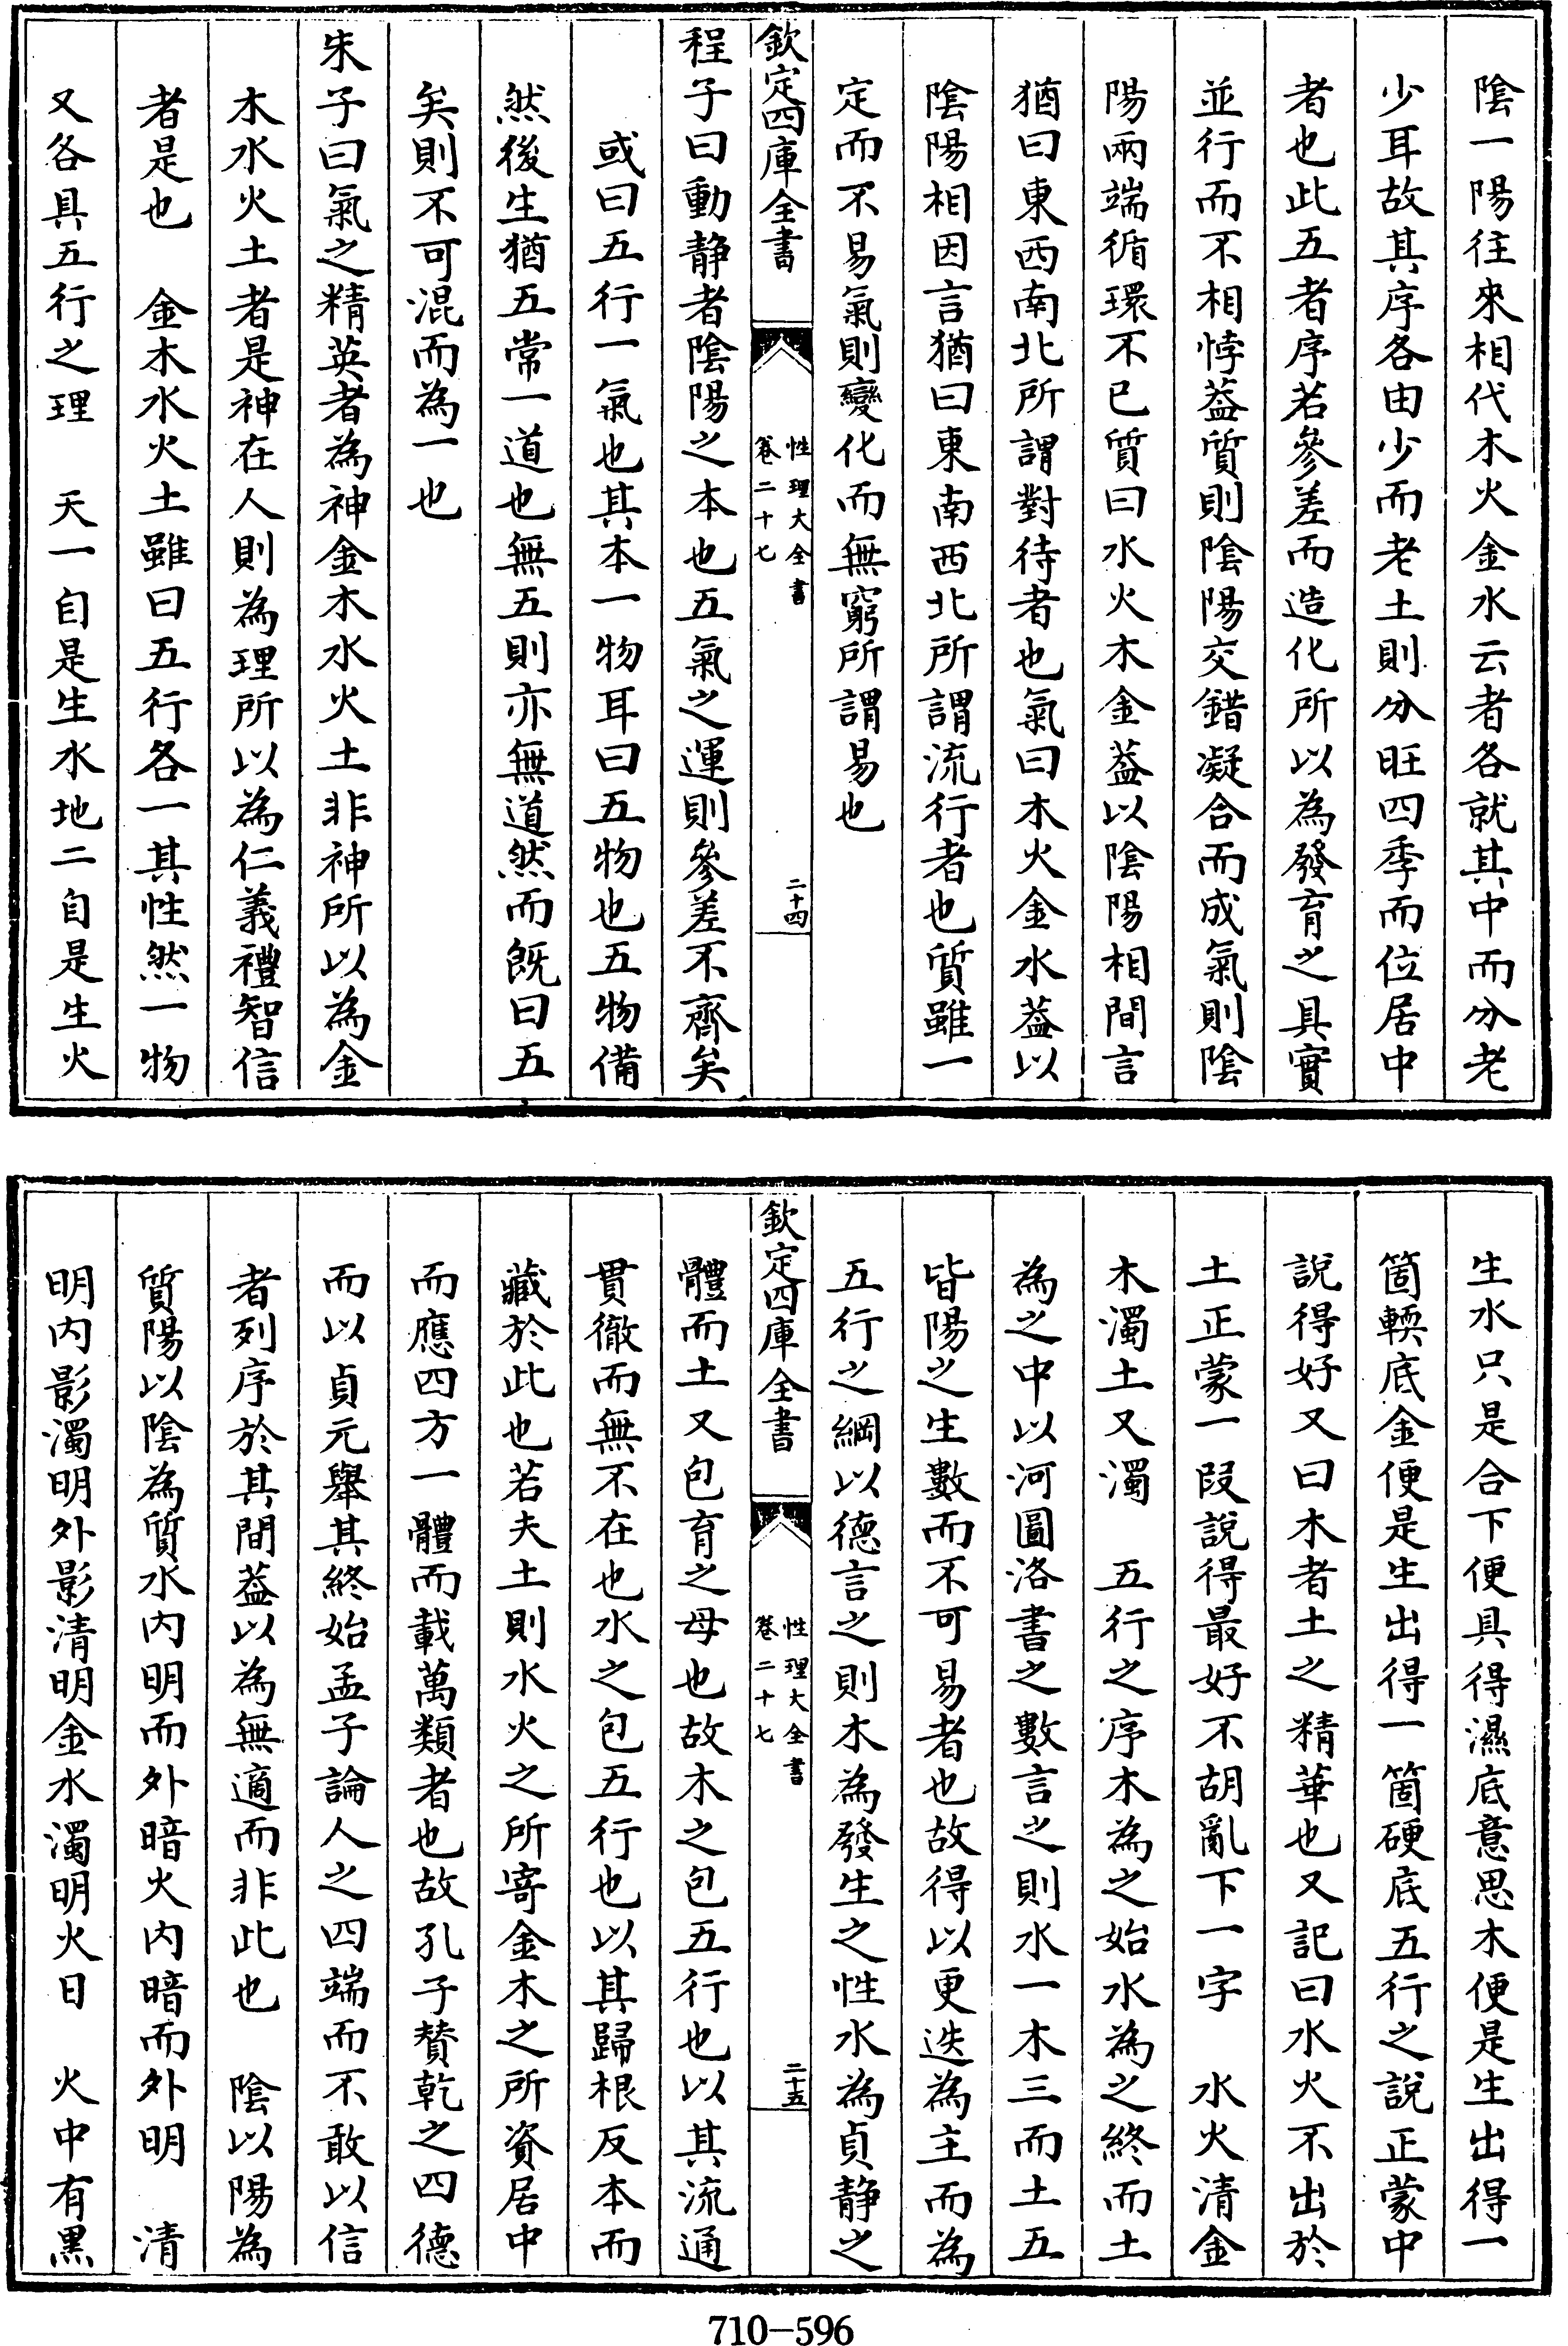 陰一陽往來相代木火金水云者各就其中而分老
少耳故其序各由少而老土則分旺四季而位居中
者也此五者序若參差而造化所以為發育之具實
並行而不相悖葢質則陰陽交錯凝合而成氣則陰
陽兩端循環不已質曰水火木金葢以陰陽相間言
猶曰東西南北所謂對待者也氣曰木火金水葢以
陰陽相因言猶曰東南西北所謂流行者也質雖一
定而不易氣則變化而無窮所謂易也
欽定四庫全書
性理大全書
卷二十七
二十四
程子曰動静者陰陽之本也五氣之運則參差不齊矣
或曰五行一氣也其本一物耳曰五物也五物備
然後生猶五常一道也無五則亦無道然而既曰五
矣則不可混而為一也
朱子曰氣之精英者為神金木水火土非神所以為金
木水火土者是神在人則為理所以為仁義禮智信
者是也　金木水火土雖曰五行各一其性然一物
又各具五行之理　天一自是生水地二自是生火
生水只是合下便具得濕底意思木便是生出得一
箇輭底金便是生出得一箇硬底五行之說正蒙中
說得好又曰木者土之精華也又記曰水火不出於
土正蒙一段說得最好不胡亂下一字　水火清金
木濁土又濁　五行之序木為之始水為之終而土
為之中以河圖洛書之數言之則水一木三而土五
皆陽之生數而不可易者也故得以更迭為主而為
五行之綱以德言之則木為發生之性水為貞静之
欽定四庫全書
性理大全書
卷二十七
二十五
體而土又包育之母也故木之包五行也以其流通
貫徹而無不在也水之包五行也以其歸根反本而
藏於此也若夫土則水火之所寄金木之所資居中
而應四方一體而載萬類者也故孔子贊乾之四德
而以貞元舉其終始孟子論人之四端而不敢以信
者列序於其間葢以為無適而非此也　陰以陽為
質陽以陰為質水内明而外暗火内暗而外明　清
明内影濁明外影清明金水濁明火日　火中有黑
710-596